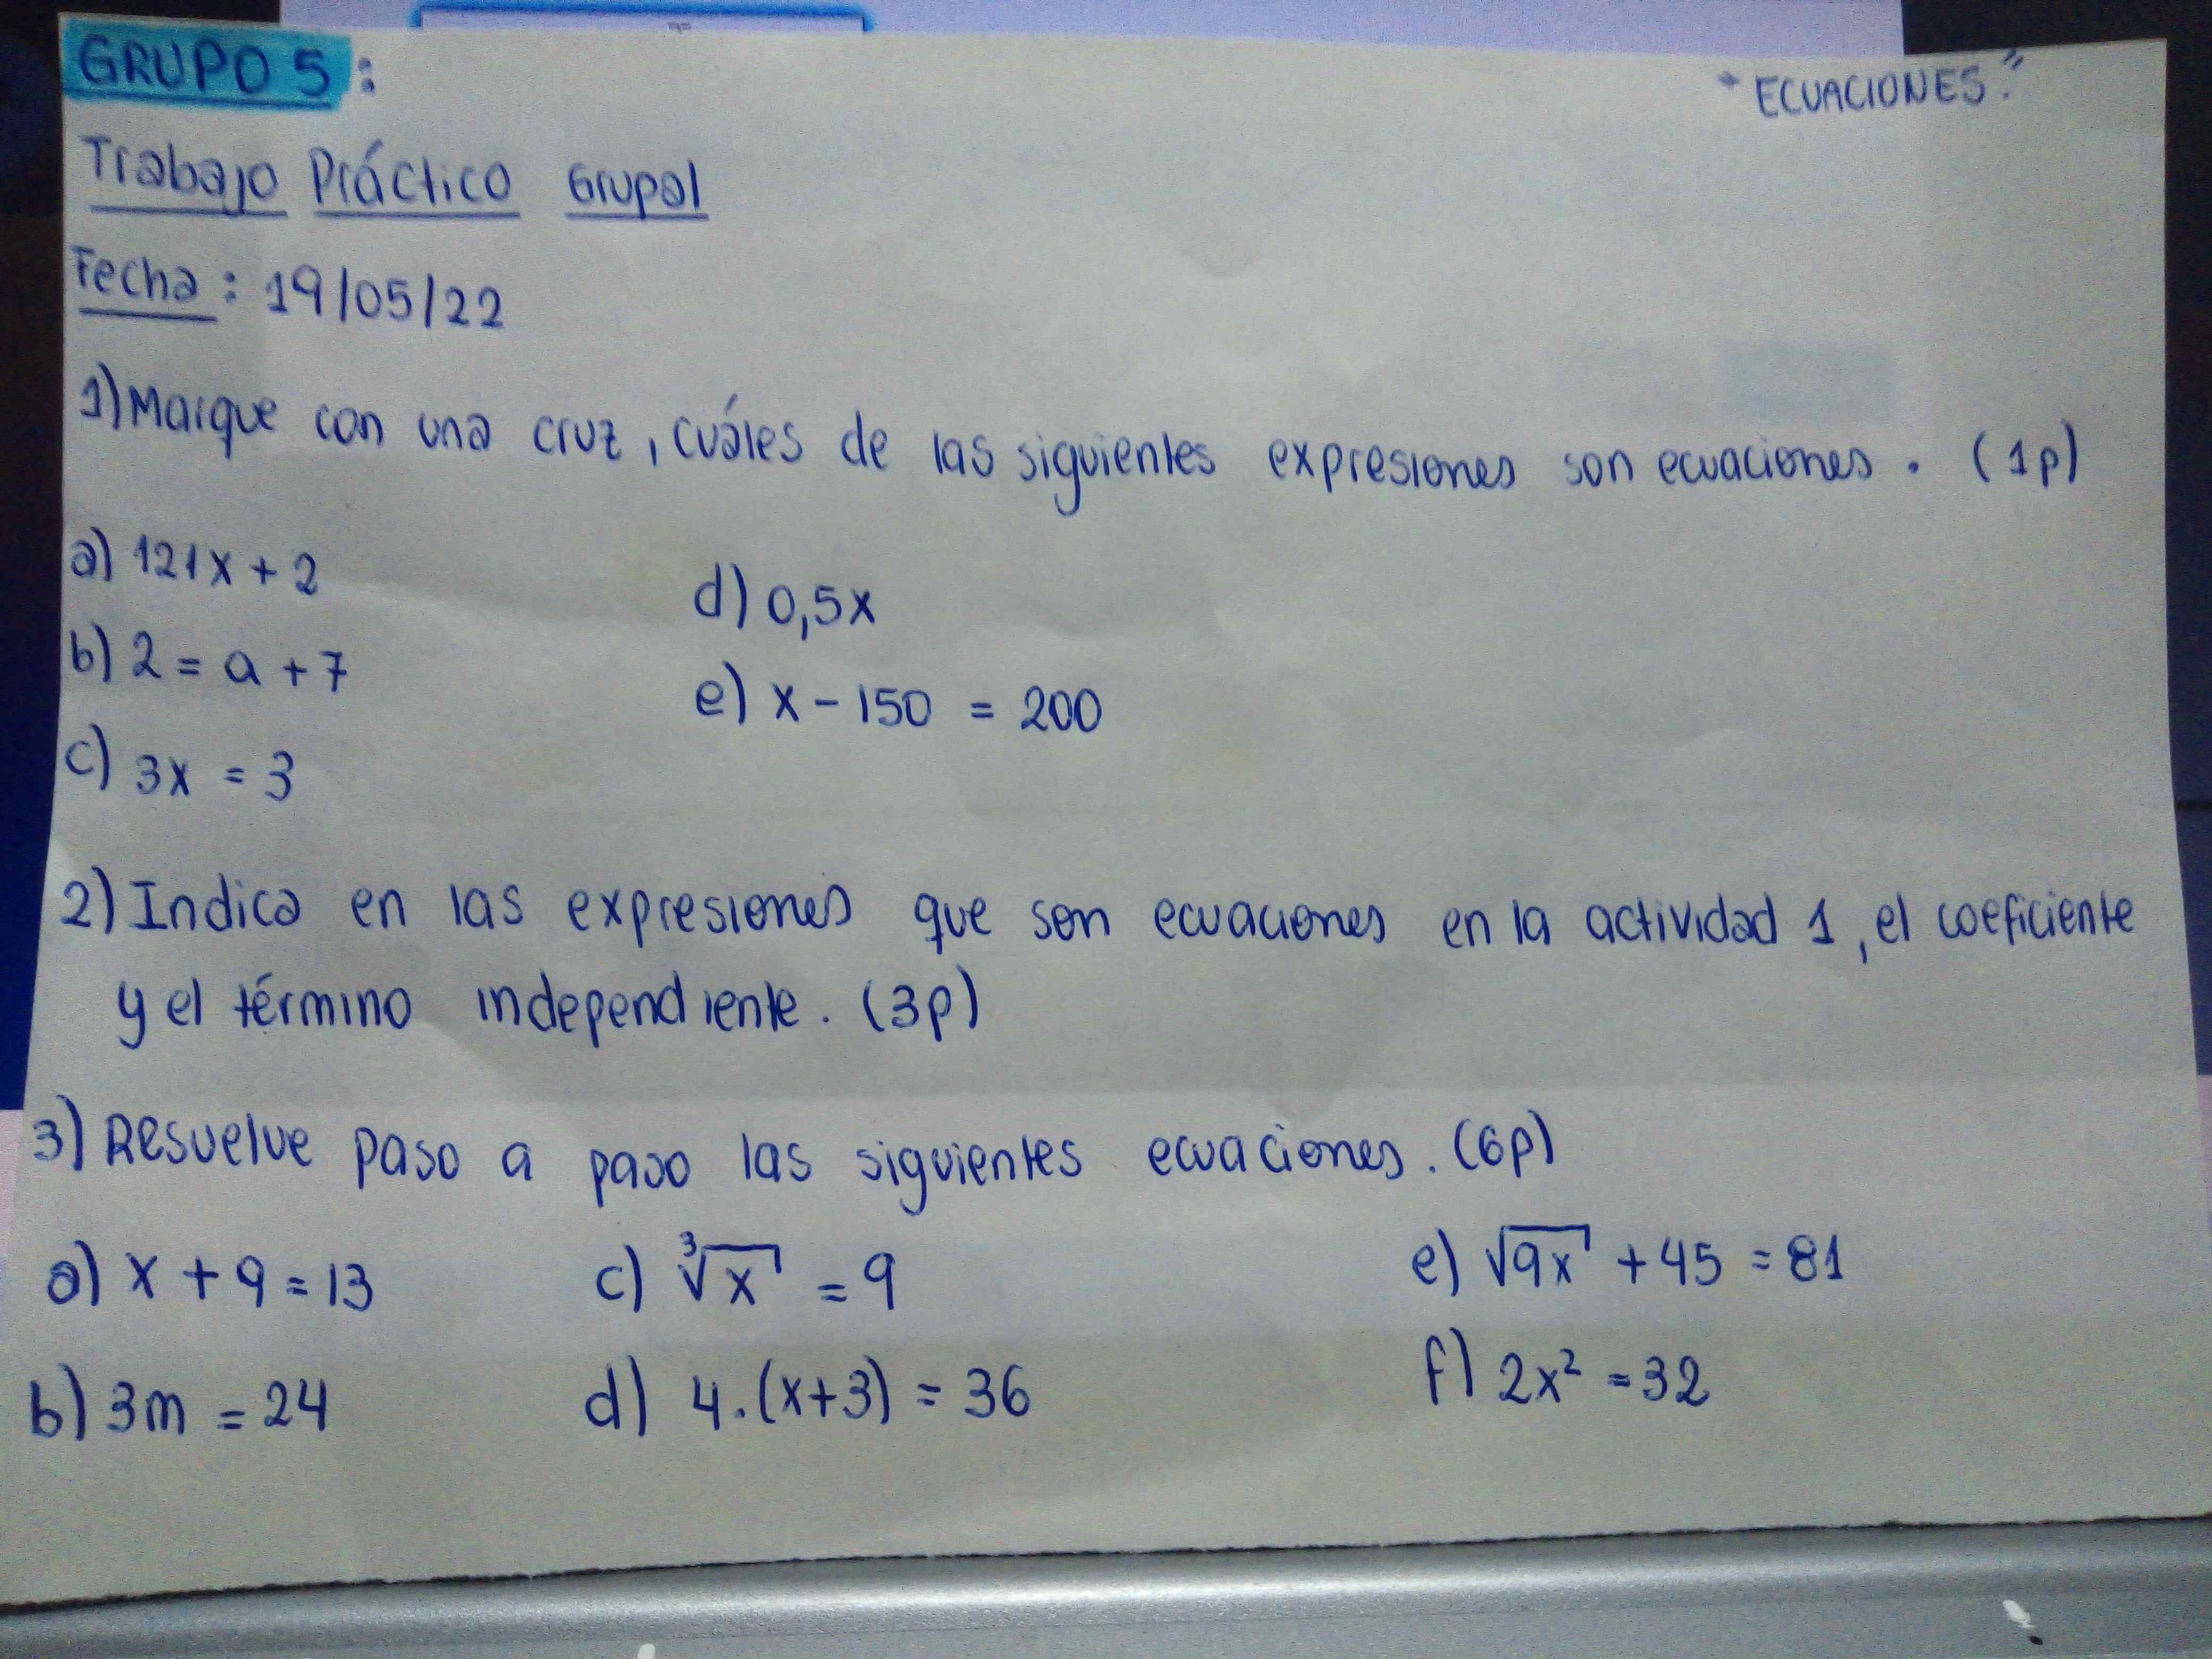 GRUPO 5:
"ECUACIONES."
Trabajo Práctico Grupal
Fecha: 19/05/22
1) Marque con una cruz, cuáles de las siguientes expresiones son ecuaciones. (1p)
a) 121x + 2
b) 2 = a + 7
c) 3x = 3
d) 0,5x
e) x - 150 = 200
2) Indica en las expresiones que son ecuaciones en la actividad 1, el coeficiente
y el término independiente. (3p)
3) Resuelve paso a paso las siguientes ecuaciones. (6p)
a) x + 9 = 13
b) 3m = 24
c) ∛x = 9
d) 4.(x+3) = 36
e) √9x + 45 = 81
f) 2x² = 32